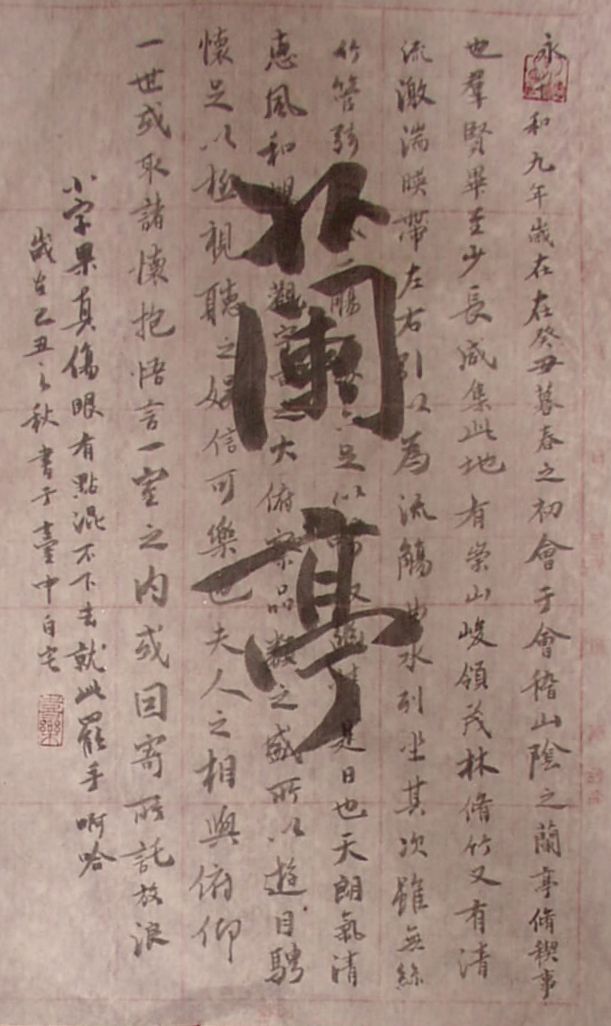 永和九年歲在在癸丑暮春之初會于會稽山陰之蘭亭脩稧事
也羣賢畢至少長咸集此地有崇山峻領茂林脩竹又有清
流激湍暎帶左右引以為流觴曲水列坐其次雖無絲
竹管弦觴足以是日也天朗氣清
惠風和觀大俯察品類之盛所以遊目騁
懷足以極視聽之娛信可樂也夫人之相與俯仰
一世或取諸懷抱悟言一室之內或因寄所託放浪
小字果真傷眼有點混不下去就此罷手啊哈
歲在己丑之秋書于臺中自宅
蘭亭